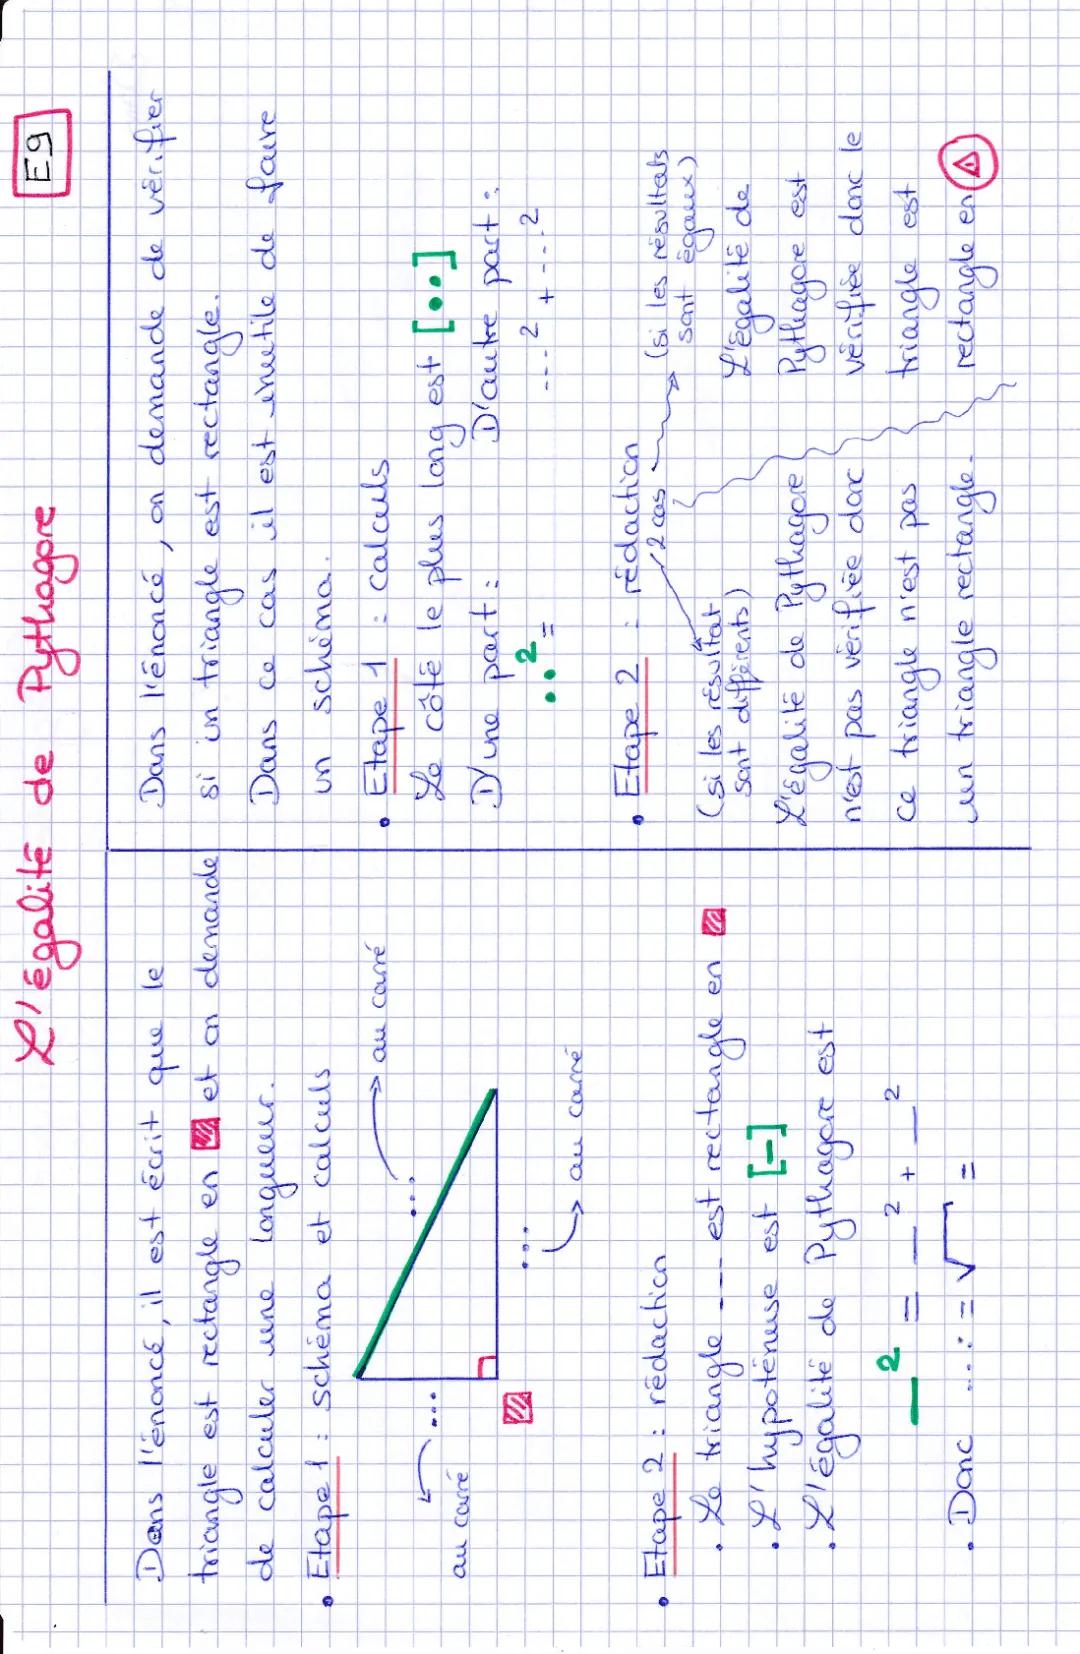 L'égalité de Pythagore
E9
Dans l'énoncé, il est écrit que le
triangle est rectangle en et on demande
de calculer une longueur.
• Etape 1 : schéma et calculs
... → au carré
au carré ← ...
... → au carré
• Etape 2 : rédaction
• Le triangle --- est rectangle en
• L'hypoténuse est [-]
• L'égalité de Pythagore est
_² = _² + _²
• Donc ... = √ =
Dans l'énoncé, on demande de vérifier
si un triangle est rectangle.
Dans ce cas il est inutile de faire
un schéma.
• Etape 1 : calculs
Le côté le plus long est [••]
D'une part : D'autre part :
••² = ---² + ---²
• Etape 2 : rédaction
2 cas
(si les résultat
sont différents)
L'égalité de Pythagore
n'est pas vérifiée donc
ce triangle n'est pas
un triangle rectangle.
(si les résultats
sont égaux)
L'égalité de
Pythagore est
vérifiée donc le
triangle est
rectangle en ⚠